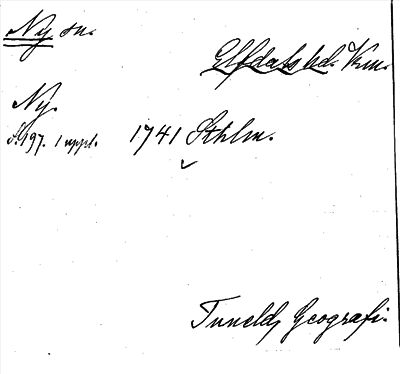 Ny sn.
Elfdals hd. Vrm.
Ny.
S. 197. 1 uppl. 1741 Sthlm.
Tunelds Geografi.